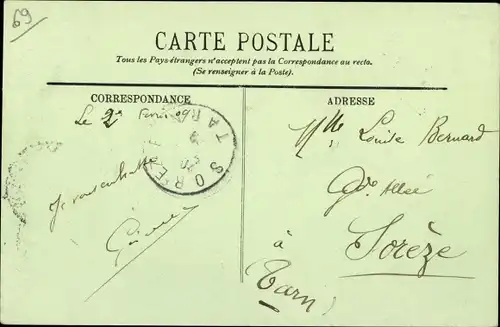 69
CARTE POSTALE
Tous les Pays étrangers n'acceptent pas la Correspondance au recto.
(Se renseigner à la Poste).
CORRESPONDANCE
ADRESSE
Le 2
SOREZE
TARN
Mlle Louise Bernard
Gde Allée
à Sorèze
Tarn